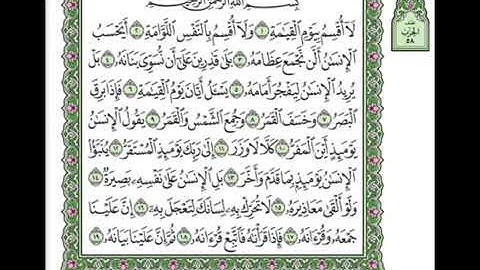 بِسْمِ ٱللَّهِ ٱلرَّحْمَٰنِ ٱلرَّحِيمِ
لَآ أُقْسِمُ بِيَوْمِ ٱلْقِيَٰمَةِ ١ وَلَآ أُقْسِمُ بِٱلنَّفْسِ ٱللَّوَّامَةِ ٢ أَيَحْسَبُ
ٱلْإِنسَٰنُ أَلَّن نَّجْمَعَ عِظَامَهُۥ ٣ بَلَىٰ قَٰدِرِينَ عَلَىٰٓ أَن نُّسَوِّىَ بَنَانَهُۥ ٤ بَلْ
يُرِيدُ ٱلْإِنسَٰنُ لِيَفْجُرَ أَمَامَهُۥ ٥ يَسْـَٔلُ أَيَّانَ يَوْمُ ٱلْقِيَٰمَةِ ٦ فَإِذَا بَرِقَ
ٱلْبَصَرُ ٧ وَخَسَفَ ٱلْقَمَرُ ٨ وَجُمِعَ ٱلشَّمْسُ وَٱلْقَمَرُ ٩ يَقُولُ ٱلْإِنسَٰنُ
يَوْمَئِذٍ أَيْنَ ٱلْمَفَرُّ ١٠ كَلَّا لَا وَزَرَ ١١ إِلَىٰ رَبِّكَ يَوْمَئِذٍ ٱلْمُسْتَقَرُّ ١٢ يُنَبَّؤُا۟
ٱلْإِنسَٰنُ يَوْمَئِذٍۭ بِمَا قَدَّمَ وَأَخَّرَ ١٣ بَلِ ٱلْإِنسَٰنُ عَلَىٰ نَفْسِهِۦ بَصِيرَةٌ ١٤
وَلَوْ أَلْقَىٰ مَعَاذِيرَهُۥ ١٥ لَا تُحَرِّكْ بِهِۦ لِسَانَكَ لِتَعْجَلَ بِهِۦٓ ١٦ إِنَّ عَلَيْنَا
جَمْعَهُۥ وَقُرْءَانَهُۥ ١٧ فَإِذَا قَرَأْنَٰهُ فَٱتَّبِعْ قُرْءَانَهُۥ ١٨ ثُمَّ إِنَّ عَلَيْنَا بَيَانَهُۥ ١٩
نصف
الحزب
٥٨